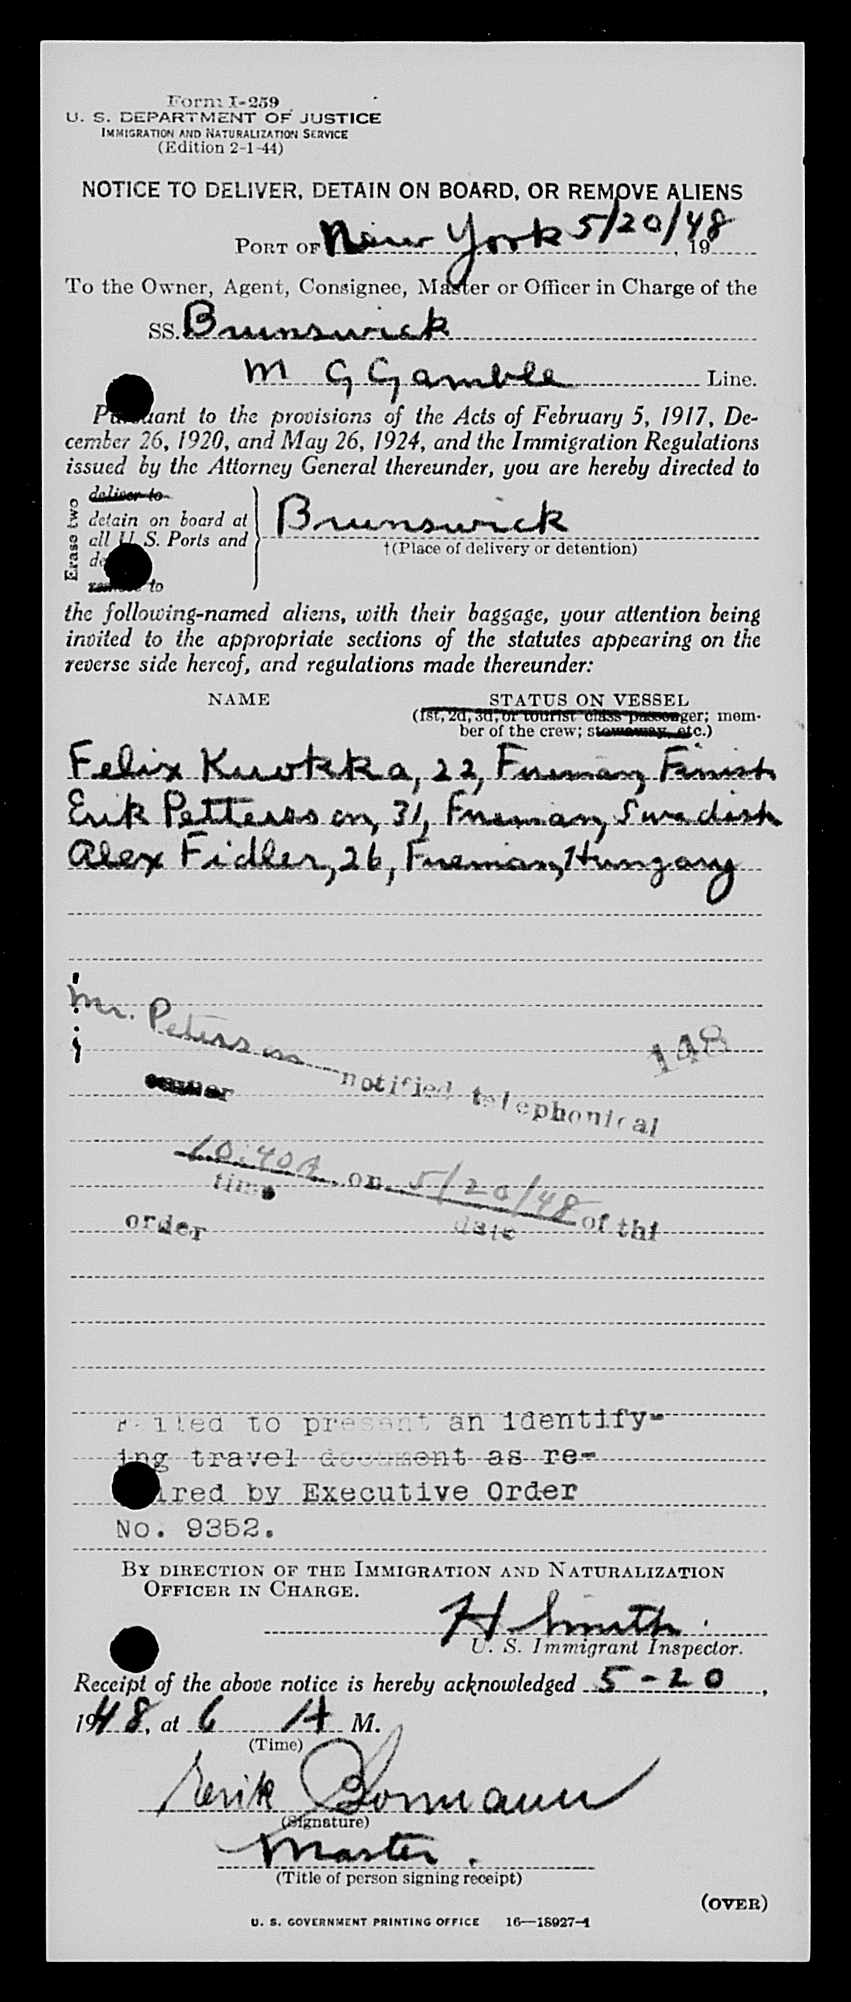 Form I-259
U. S. DEPARTMENT OF JUSTICE
IMMIGRATION AND NATURALIZATION SERVICE
(Edition 2-1-44)
NOTICE TO DELIVER, DETAIN ON BOARD, OR REMOVE ALIENS
PORT OF New York 5/20/48, 19
To the Owner, Agent, Consignee, Master or Officer in Charge of the
SS. Brunswick
M G Gamble Line.
Pursuant to the provisions of the Acts of February 5, 1917, De-
cember 26, 1920, and May 26, 1924, and the Immigration Regulations
issued by the Attorney General thereunder, you are hereby directed to
Erase two
deliver to
detain on board at
all U. S. Ports and
to
Brunswick
†(Place of delivery or detention)
the following-named aliens, with their baggage, your attention being
invited to the appropriate sections of the statutes appearing on the
reverse side hereof, and regulations made thereunder:
NAME STATUS ON VESSEL
(1st, 2d, 3d, or tourist class passenger; mem-
ber of the crew; stowaway, etc.)
Felix Kuokka, 22, Fireman, Finish
Erik Pettersson, 31, Fireman, Swedish
Alex Fidler, 26, Fireman, Hungary
Mr. Peterson
148
notified telephonical
10:40A on 5/20/48 of thi
time date
order
Failed to present an identify-
ing travel document as re-
quired by Executive Order
No. 9352.
BY DIRECTION OF THE IMMIGRATION AND NATURALIZATION
OFFICER IN CHARGE.
H Smith
U. S. Immigrant Inspector.
Receipt of the above notice is hereby acknowledged 5-20,
1948, at 6 A M.
(Time)
Erik Bomann
(Signature)
Master.
(Title of person signing receipt)
(OVER)
U. S. GOVERNMENT PRINTING OFFICE 16—18927-1